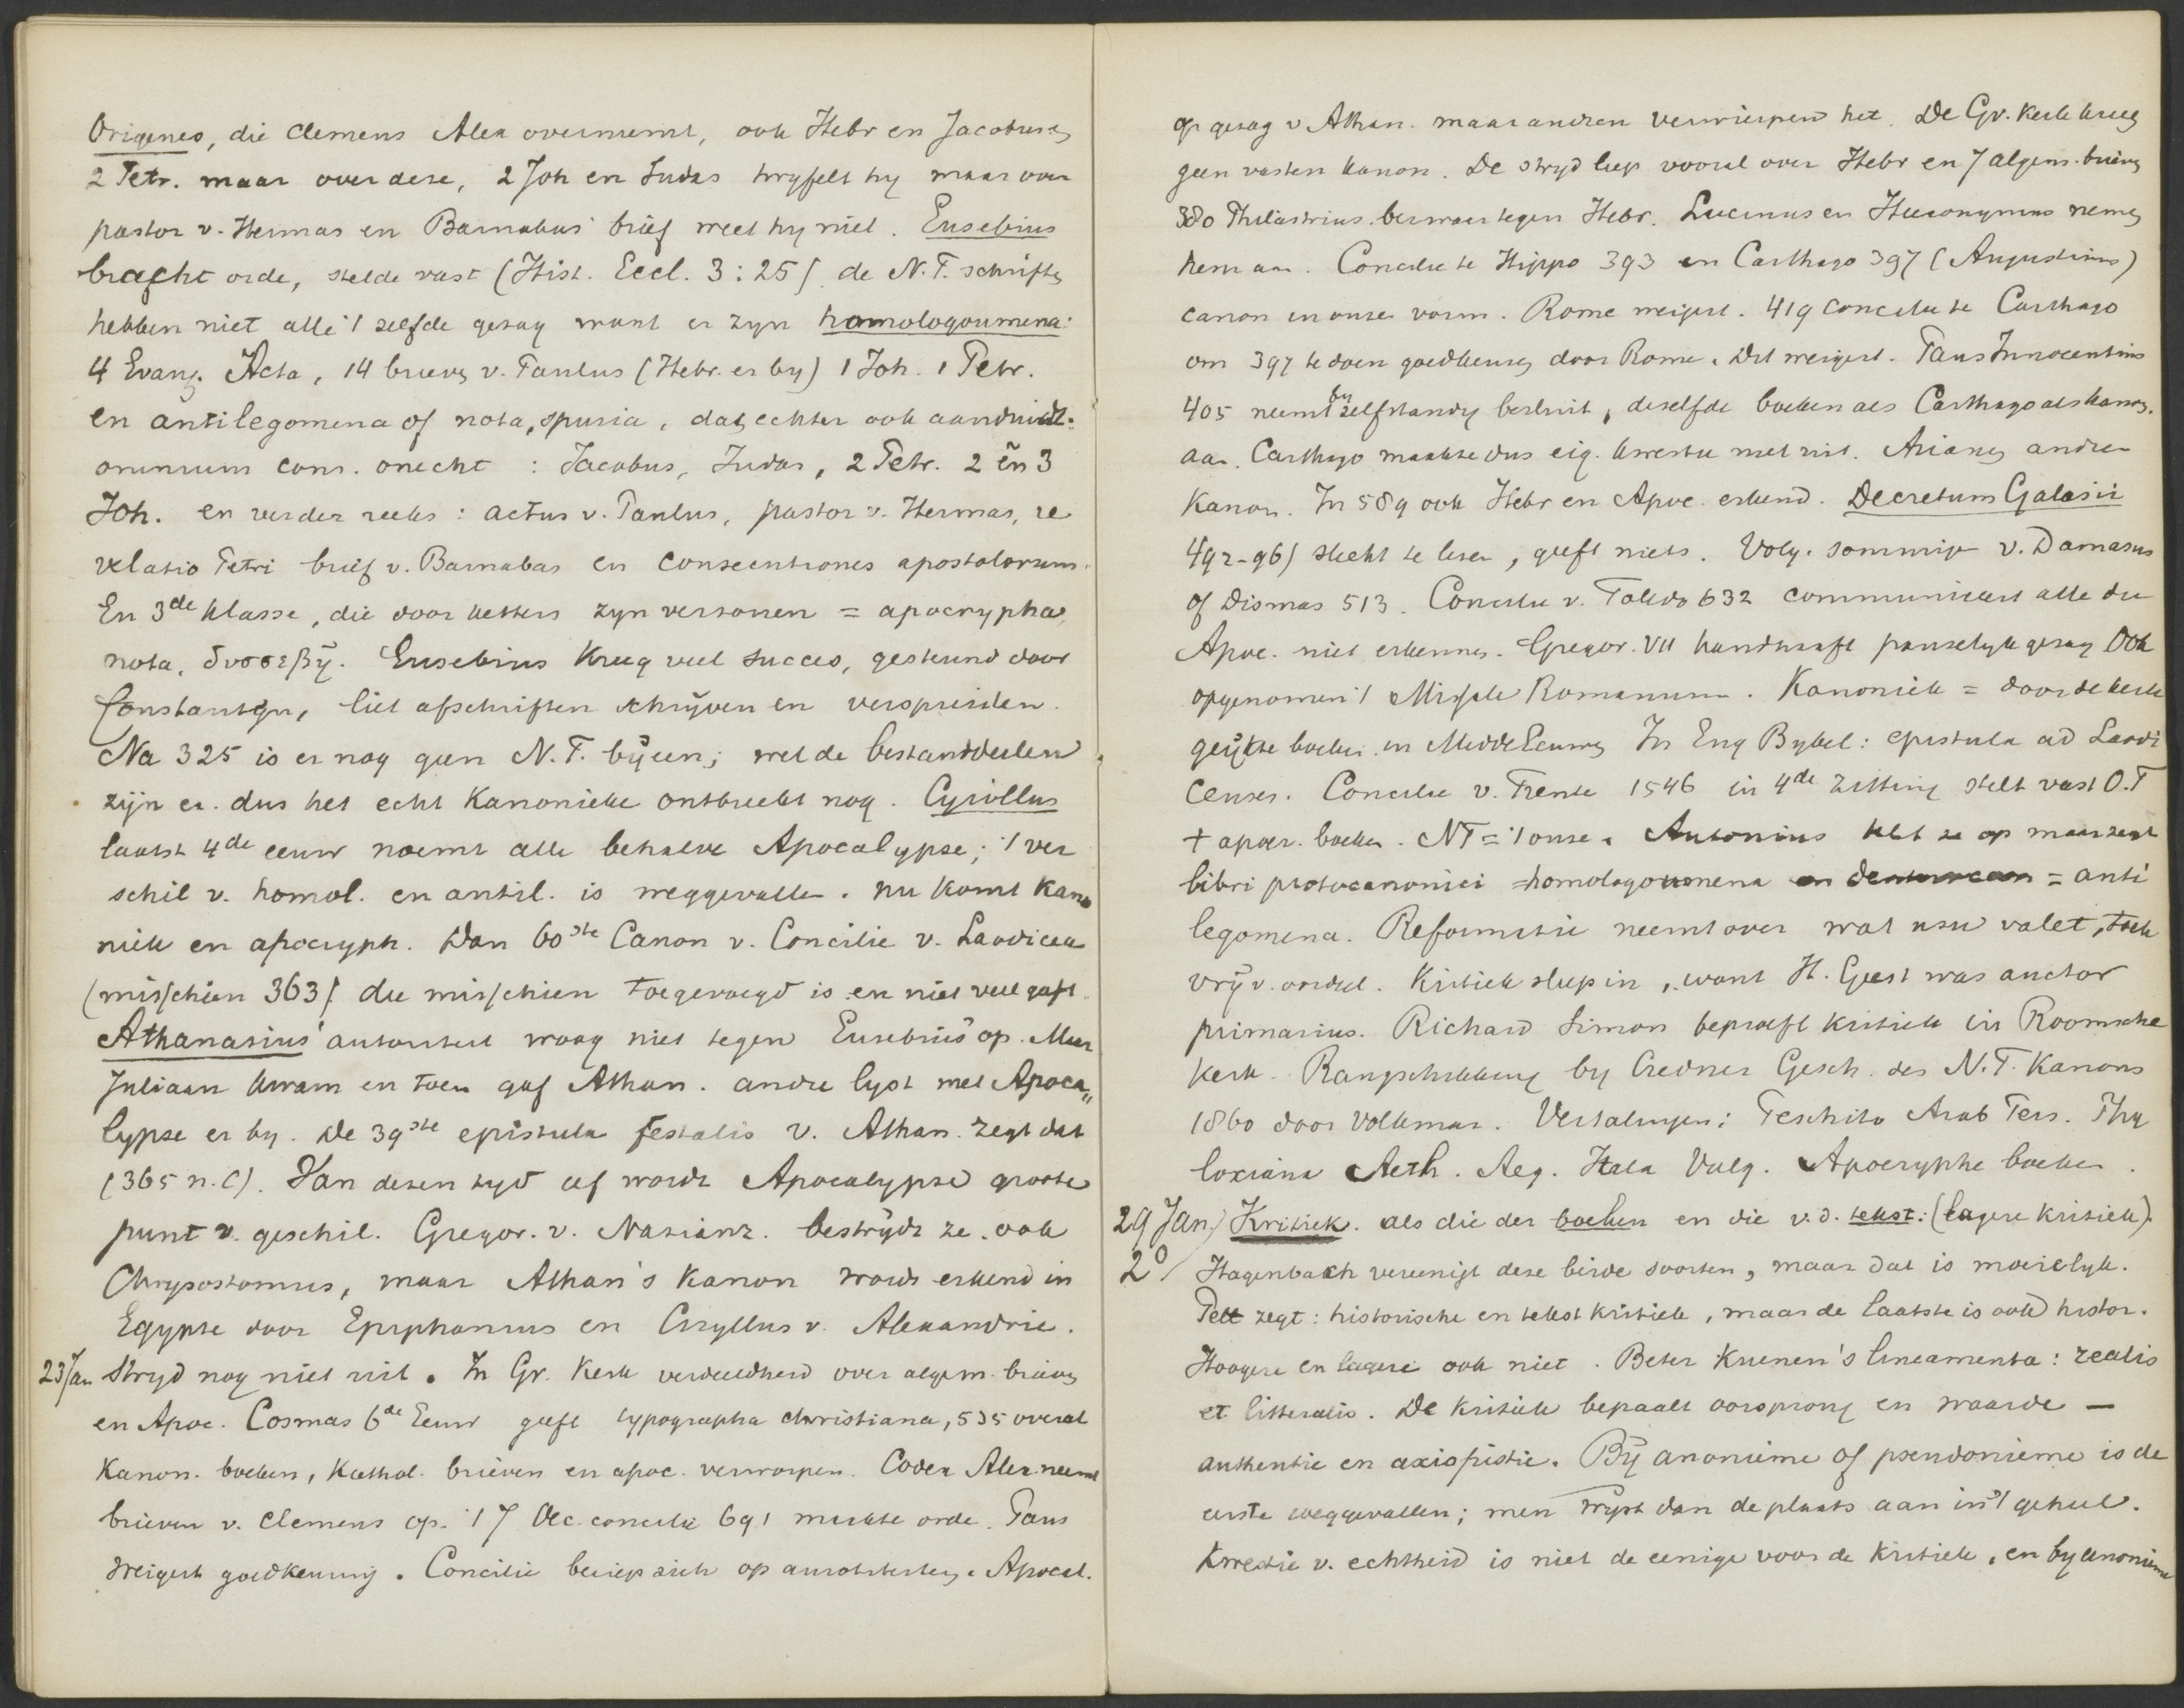 Origenes, die Clemens Alex overneemt, ook Hebr en Jacobus en
2 Petr. maar over deze, 2 Joh en Judas twyfelt hy maar over
pastor v. Hermas en Barnabas' brief weet hy niet. Eusebius
bracht orde, stelde vast (Hist. Eccl. 3:25) de N.T. schriften
hebben niet alle 't zelfde gezag want er zyn homologoumena:
4 Evang. Acta, 14 brieven v. Paulus (Hebr. er by) 1 Joh. 1 Petr.
en antilegomena of nota, spuria, dat echter ook aanduidt:
omnium cons. onecht : Jacobus, Judas, 2 Petr. 2 en 3
Joh. en verder reeks : actus v. Paulus, pastor v. Hermas, re
velatio Petri brief v. Barnabas en consecutiones apostolorum.
En 3de klasse, die door ketters zyn verzonnen = apocrypha
nota, δυσσεβῆ. Eusebius kreeg veel succes, gesteund door
Constantyn, liet afschriften schrijven en verspreiden.
Na 325 is er nog geen N.T. bijeen; wel de bestanddeelen
zijn er. dus het echt Kanonieke ontbreekt nog. Cyrillus
laatst 4de eeuw noemt alle behalve Apocalypse; 't ver
schil v. homol. en antil. is weggevallen. nu komt Kano
niek en apocryph. Dan 60ste Canon v. Concilie v. Laodicea
(misschien 363) die misschien toegevoegd is en niet veel geeft.
Athanasius' autoriteit woog niet tegen Eusebius op. Maar
Juliaan kwam en toen gaf Athan. andre lyst met Apoca„
lypse er by. De 39ste epistula festalis v. Athan. zegt dat
(365 n.C). Van dezen tyd af wordt Apocalypse groote
punt v. geschil. Gregor. v. Nazianz. bestrydt ze. ook
Chrysostomus, maar Athan's Kanon wordt erkend in
Egypte door Epiphanius en Cyrillus v. Alexandrie.
23 Jan Stryd nog niet uit. In Gr. Kerk verdeeldheid over algem. brieven
en Apoc. Cosmas 6de Eeuw geeft typographa christiana, 535 overal
Kanon. boeken, Kathol. brieven en apoc. verworpen. Codex Alex neemt
brieven v. Clemens op. 't 7 Oec. concilie 691 maakte orde. Paus
weigert goedkeuring. Concilie beriep zich op autoriteiten. Apocal.
op gezag v Athan. maar andren verwierpen het. De Gr. Kerk kreeg
geen vasten kanon. De stryd liep vooral over Hebr en 7 algem. brieven
380 Philastrius bezwaar tegen Hebr. Lucinus en Hieronymus nemen
hem aan. Concilie te Hippo 393 en Carthago 397 (Augustinus)
canon in onze vorm. Rome weigert. 419 concilie te Carthago
om 397 te doen goedkeuren door Rome. Dit weigert. Paus Innocentius
405 neemt by zelfstandig besluit, dezelfde boeken als Carthago als kanon.
aan. Carthago maakte dus eig. kwestie met uit. Arianen andren
Kanon. In 589 ook Hebr en Apoc. erkend. Decretum Galasii
492-96) slecht te lezen, geeft niets. Volg. sommige v. Damasus
of Dismas 513. Concilie v. Toledo 632 communiceert alle die
Apoc. niet erkennen. Gregor. VII handhaaft pauselyk gezag Ook
opgenomen 't Missale Romanum. Kanoniek = door de kerk
geijkte boeken in MiddelEeuwen In Eng Bybel: epistula ad Laodi
censes. Concilie v. Trente 1546 in 4de zitting stelt vast O.T
+ apocr. boeken. NT = 't onze. Antonius telt ze op maar zegt
libri protocanonici = homologoumena en = anti
legomena. Reformatie neemt over wat usu valet, toch
vrij v. oordeel. Kritiek sleep in, want H. Geest was auctor
primarius. Richard Simon beproeft kritiek in Roomsche
Kerk. Rangschikking by Credner Gesch. des N.T. Kanons
1860 door Volkmar. Vertalingen: Peschito Arab Pers. Phi
loxiana Aeth. Aeg. Itala Vulg. Apocryphe boeken.
29 Jan) Kritiek. als die der boeken en die v.d. tekst: (lagere kritiek).
2º/ Hagenbach vereenigt deze beide soorten, maar dat is moeielyk.
Pelt zegt: historische en tekstkritiek, maar de laatste is ook histor.
Hoogere en lagere ook niet. Beter Kuenen's lineamenta: realis
et litteralis. De kritiek bepaalt oorsprong en waarde —
authentie en axiopistie. Bij anonieme of pseudonieme is de
eerste weggevallen; men wyst dan de plaats aan in 't geheel.
Kwestie v. echtheid is niet de eenige voor de kritiek, en by anonieme